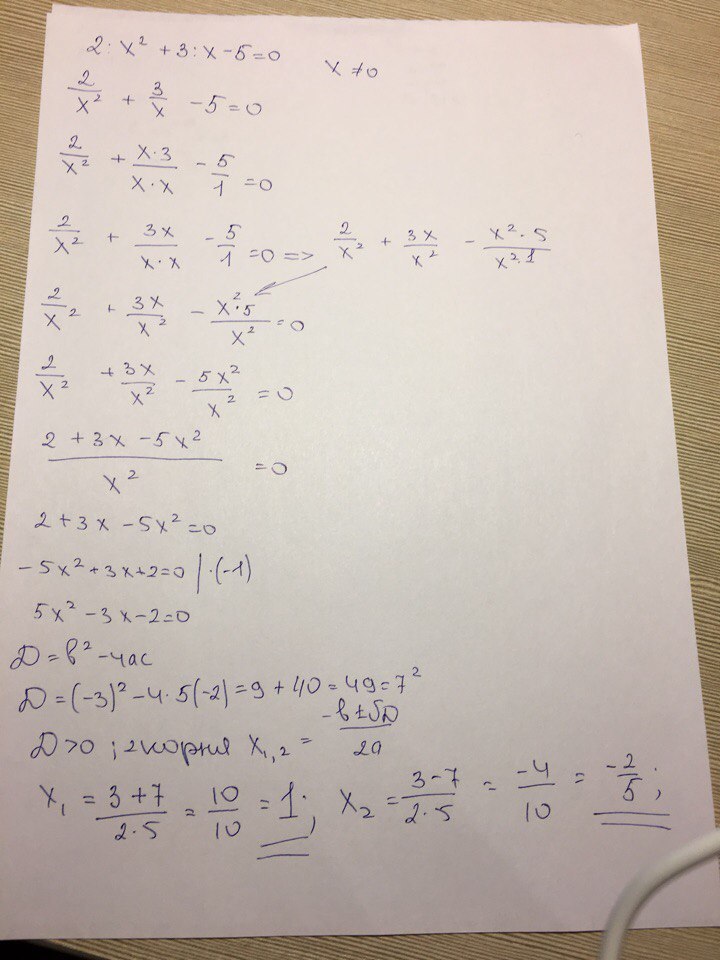 2 : x² + 3 : x - 5 = 0    x ≠ 0
2/x² + 3/x - 5 = 0
2/x² + x·3/x·x - 5/1 = 0
2/x² + 3x/x·x - 5/1 = 0 => 2/x² + 3x/x² - x²·5/x²·1
2/x² + 3x/x² - x²·5/x² = 0
2/x² + 3x/x² - 5x²/x² = 0
2 + 3x - 5x²/x² = 0
2 + 3x - 5x² = 0
-5x² + 3x + 2 = 0 | ·(-1)
5x² - 3x - 2 = 0
D = b² - 4ac
D = (-3)² - 4·5(-2) = 9 + 40 = 49 = 7²
D > 0 ; 2 корня x₁,₂ = -b±√D/2a
x₁ = 3+7/2·5 = 10/10 = 1; x₂ = 3-7/2·5 = -4/10 = -2/5;